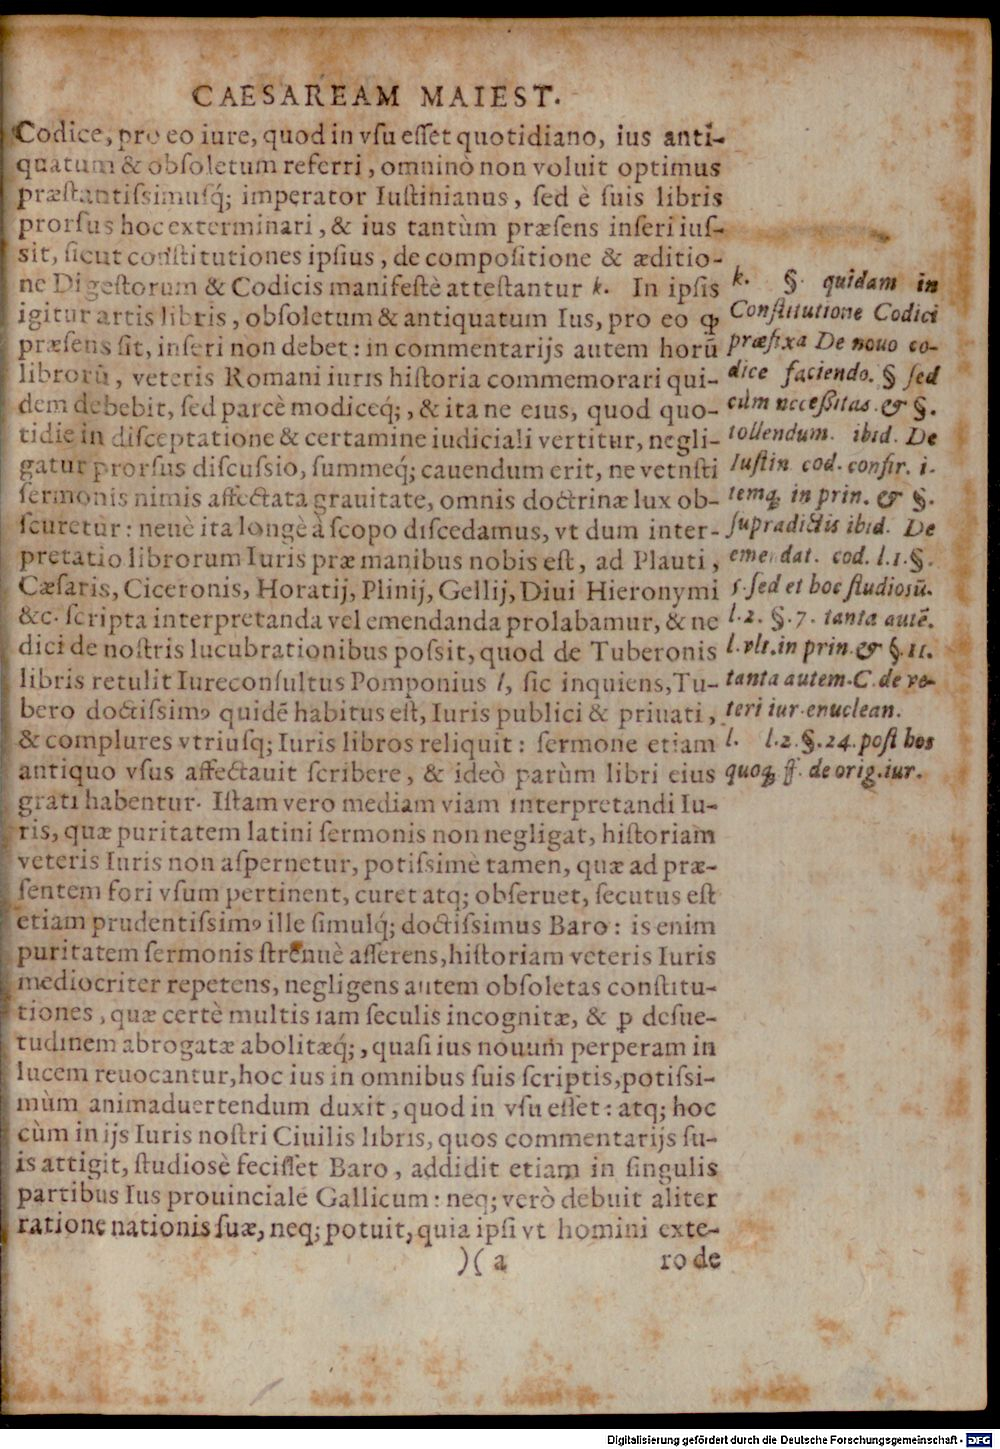 CAESAREAM MAIEST.
Codice, pro eo iure, quod in vſu eſſet quotidiano, ius anti-
quatum & obſoletum referri, omninò non voluit optimus
præſtantiſsimuſq́; imperator Iuſtinianus, ſed è ſuis libris
prorſus hoc exterminari, & ius tantùm præſens inſeri iuſ-
sit, ſicut conſtitutiones ipſius, de compoſitione & æditio-
ne Digeſtorum & Codicis manifeſtè atteſtantur k. In ipſis
igitur artis libris, obſoletum & antiquatum Ius, pro eo ꝙ
præſens ſit, inſeri non debet: in commentarijs autem horū
librorū, veteris Romani iuris hiſtoria commemorari qui-
dem debebit, ſed parcè modiceq́;, & ita ne eius, quod quo-
tidie in diſceptatione & certamine iudiciali vertitur, negli-
gatur prorſus diſcuſsio, ſummeq́; cauendum erit, ne vetnſti
ſermonis nimis affectata grauitate, omnis doctrinæ lux ob-
ſcuretur: neuè ita longè à ſcopo diſcedamus, vt dum inter-
pretatio librorum Iuris præ manibus nobis eſt, ad Plauti,
Cæſaris, Ciceronis, Horatij, Plinij, Gellij, Diui Hieronymi
&c. ſcripta interpretanda vel emendanda prolabamur, & ne
dici de noſtris lucubrationibus poſsit, quod de Tuberonis
libris retulit Iureconſultus Pomponius l, ſic inquiens, Tu-
bero doctiſsimꝰ quidē habitus eſt, Iuris publici & priuati,
& complures vtriuſq; Iuris libros reliquit: ſermone etiam
antiquo vſus affectauit ſcribere, & ideò parùm libri eius
grati habentur. Iſtam vero mediam viam interpretandi Iu-
ris, quæ puritatem latini ſermonis non negligat, hiſtoriam
veteris Iuris non aſpernetur, potiſsimè tamen, quæ ad præ-
ſentem fori vſum pertinent, curet atq; obſeruet, ſecutus eſt
etiam prudentiſsimꝰ ille ſimulq́; doctiſsimus Baro: is enim
puritatem ſermonis ſtrenuè aſſerens, hiſtoriam veteris Iuris
mediocriter repetens, negligens autem obſoletas conſtitu-
tiones, quæ certè multis iam ſeculis incognitæ, & ꝑ deſue-
tudinem abrogatæ abolitæq́;, quaſi ius nouum perperam in
lucem reuocantur, hoc ius in omnibus ſuis ſcriptis, potiſsi-
mùm animaduertendum duxit, quod in vſu eſſet: atq; hoc
cùm in ijs Iuris noſtri Ciuilis libris, quos commentarijs ſu-
is attigit, ſtudiosè feciſſet Baro, addidit etiam in ſingulis
partibus Ius prouinciale Gallicum: neq; verò debuit aliter
ratione nationis ſuæ, neq; potuit, quia ipſi vt homini exte-
)( a
ro de
k. §. quidam in
Conſtitutione Codici
præfixa De nouo co-
dice faciendo. § ſed
cùm neceßitas. & §.
tollendum. ibid. De
Iuſtin. cod. confir. i.
temq́ꝫ in prin. & §.
ſupradictis ibid. De
emendat. cod. l.1.§.
5. ſed et hoc ſtudiosū.
l.2. §.7. tanta autē.
l.vlt. in prin. & §.11.
tanta autem. C. de ve-
teri iur. enuclean.
l. l.2.§.24. poſt hos
quoqꝫ ff. de orig. iur.
Digitalisierung gefördert durch die Deutsche Forschungsgemeinschaft - DFG